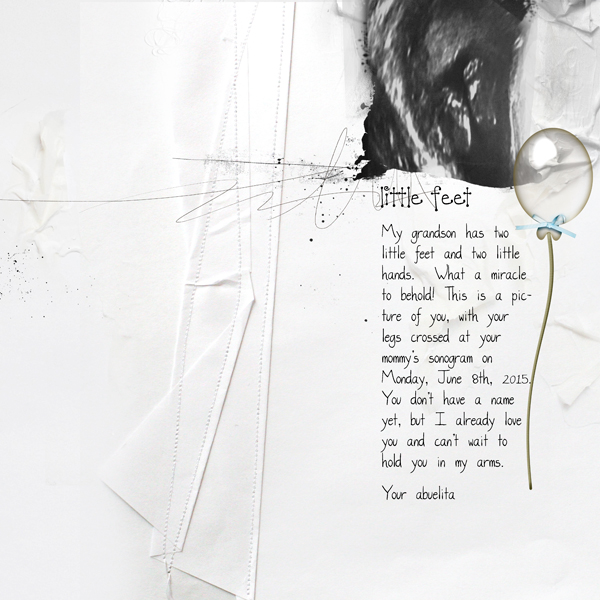 little feet
My grandson has two
little feet and two little
hands. What a miracle
to behold! This is a pic-
ture of you, with your
legs crossed at your
mommy's sonogram on
Monday, June 8th, 2015.
You don't have a name
yet, but I already love
you and can't wait to
hold you in my arms.
Your abuelita